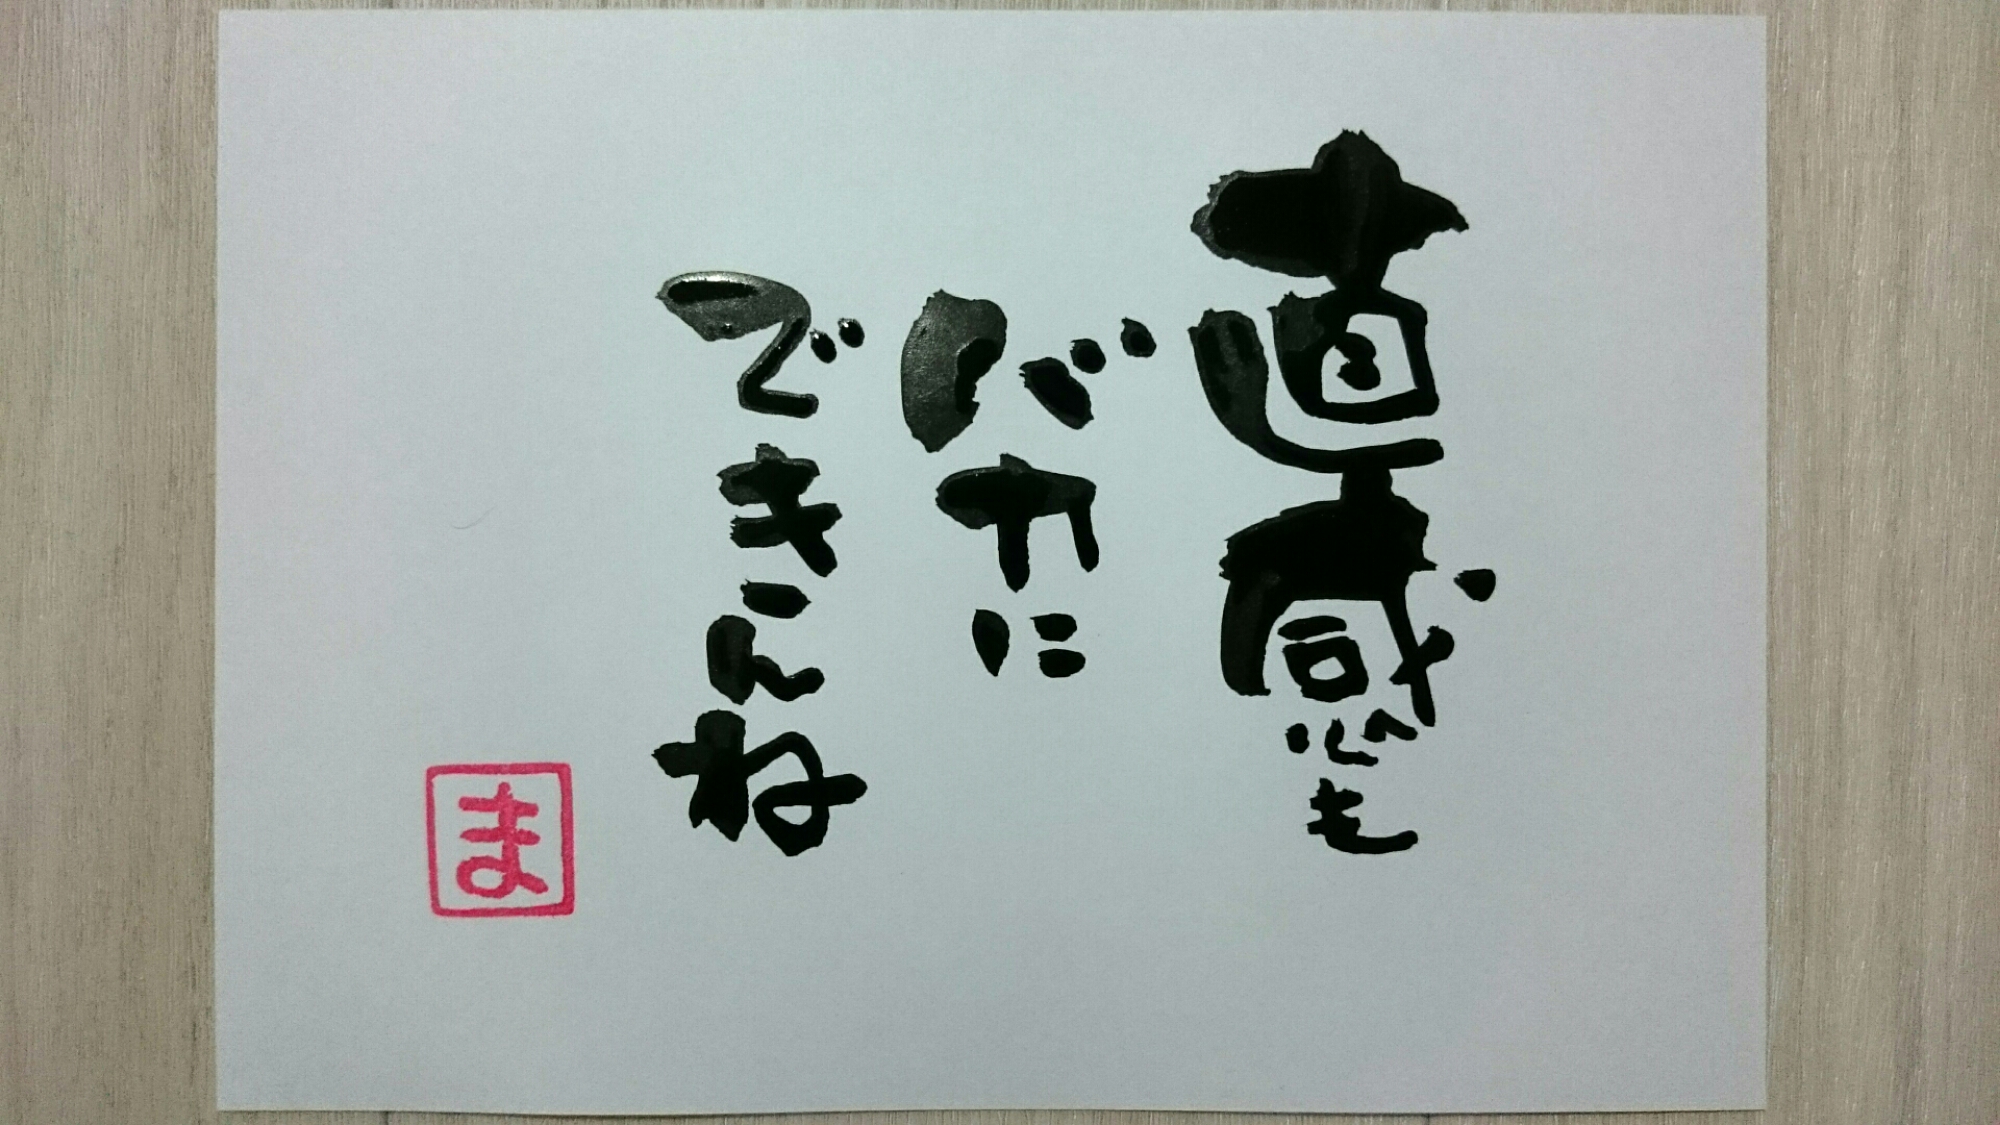 直感も
バカに
できんね
ま